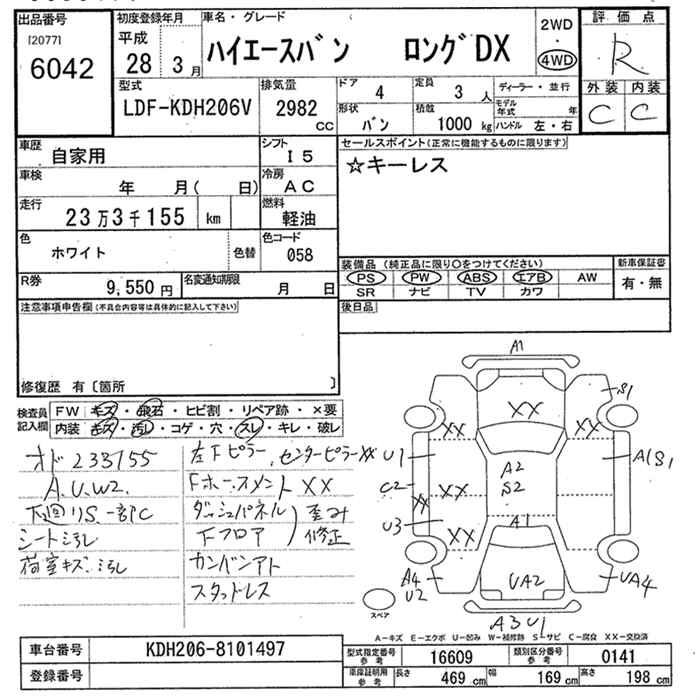 出品番号
[2077]
6042
初度登録年月
平成
28 3月
車名・グレード
ハイエースバン ロングDX
2WD
・
4WD
評価点
R
外装 内装
C C
型式
LDF-KDH206V
排気量
2982 cc
ドア 4
定員 3 人
ディーラー・並行
形状 バン
積載 1000 kg
モデル年式 年
ハンドル 左・右
車歴
自家用
シフト
I5
車検
年 月( 日)
冷房
AC
走行
23万3千155 km
燃料
軽油
色
ホワイト
色替
色コード
058
R券
9,550円
名変通知期限
月 日
セールスポイント(正常に機能するものに限ります)
☆キーレス
装備品(純正品に限り○をつけてください)
PS PW ABS エアB AW
SR ナビ TV カワ
新車保証書
有・無
後日品
注意事項申告欄(不具合内容等は具体的に記入して下さい)
修復歴 有〔箇所 〕
検査員記入欄
FW キズ・飛石・ヒビ割・リペア跡・×要
内装 キズ・汚レ・コゲ・穴・スレ・キレ・破レ
オド233155
A.U.W2.
下廻りS.一部C
シート汚れ
荷室キズ.汚れ
左Fピラー,センターピラーXX
Fホースメント XX
ダッシュパネル
Fフロア
歪み
修正
カンバンアト
スタッドレス
A1
S1
XX
XX
XX
U1
A2
S2
A1S1
C2
XX
XX
U3
A1
XX
A4
U2
UA2
UA4
A3U1
スペア
A-キズ E-エクボ U-凹み W-補修跡 S-サビ C-腐食 XX-交換済
車台番号
KDH206-8101497
登録番号
型式指定番号
参考
16609
類別区分番号
参考
0141
車庫証明用
参考
長さ 469 cm
幅 169 cm
高さ 198 cm